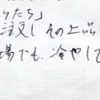 けたち」
設し その上品
場でも、冷やして